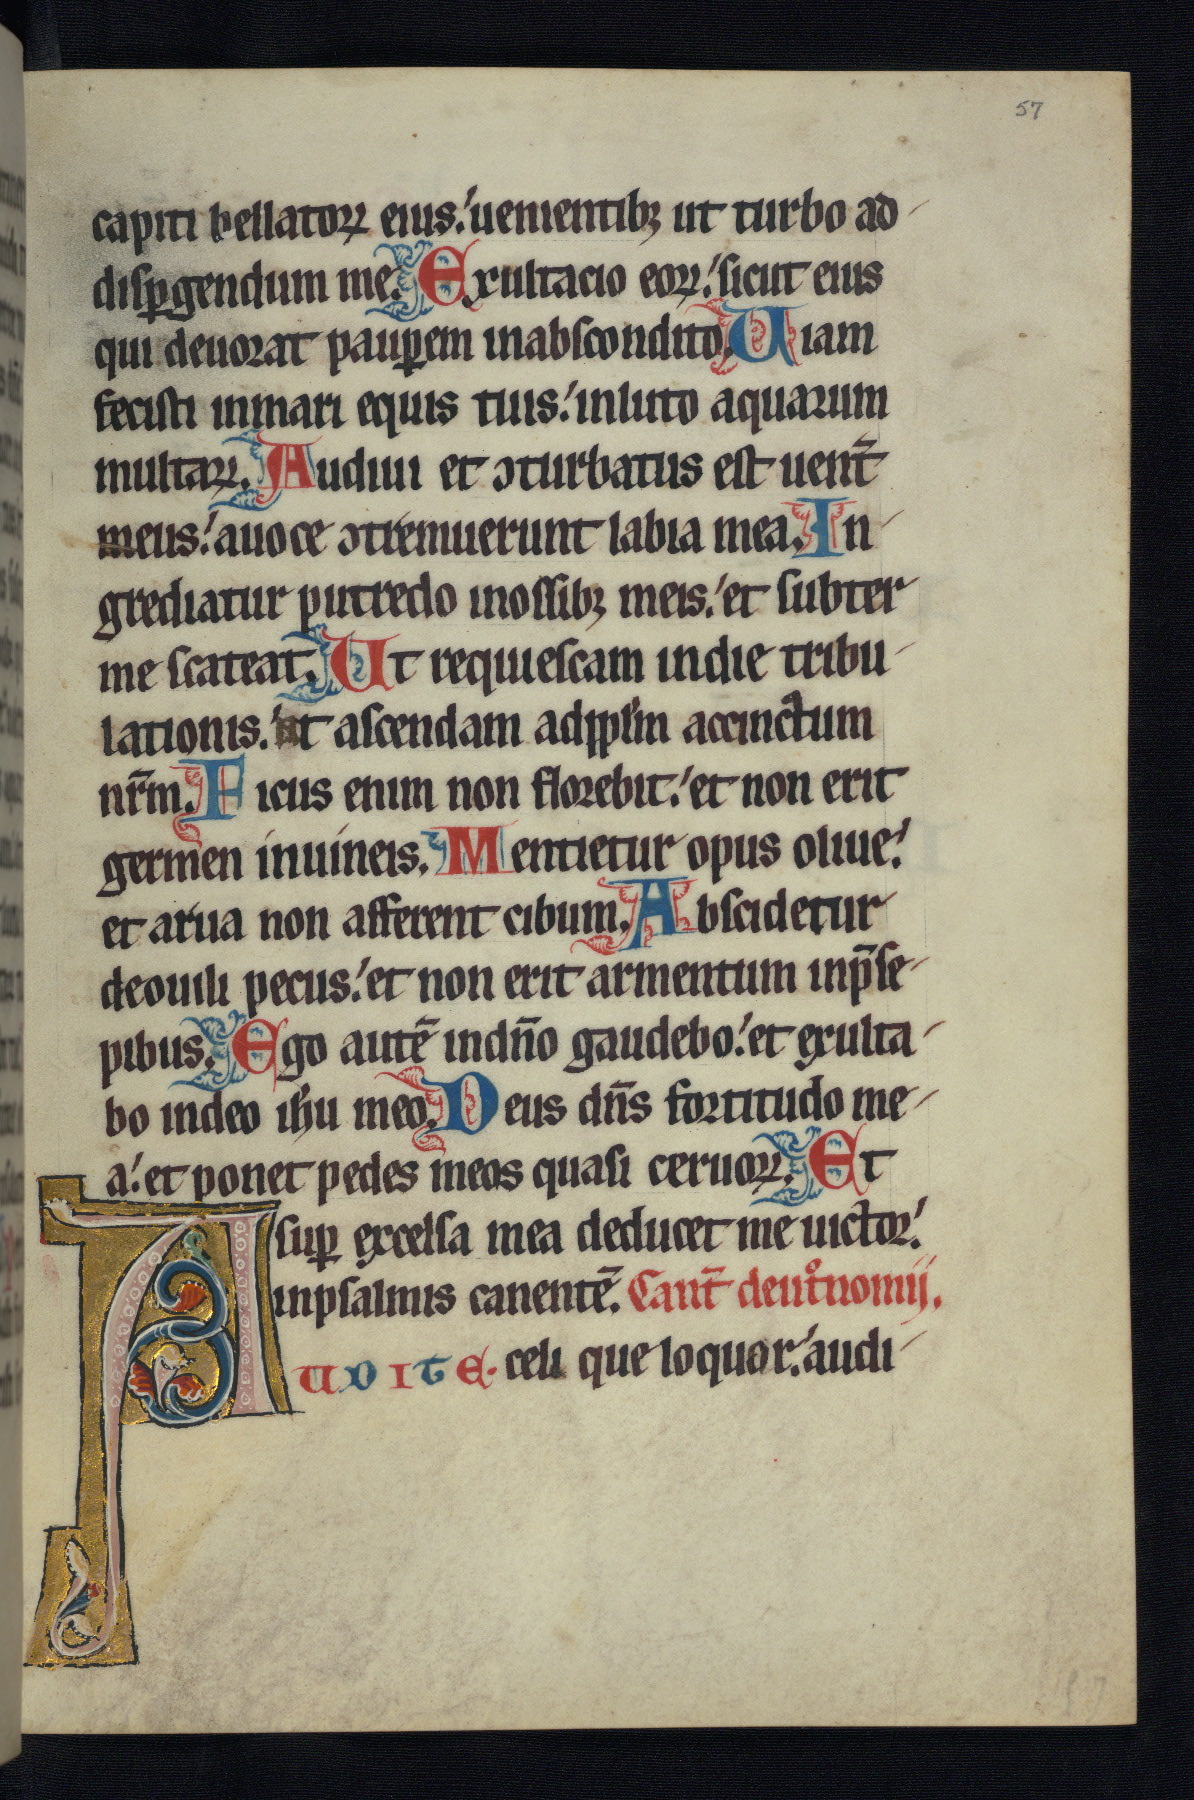 57
capiti bellatoꝝ eius.' uenientibꝫ ut turbo ad
disꝑgendum me. Exultacio eoꝝ.' sicut eius
qui deuorat pauꝑem inabscondito. Uiam
fecisti inmari equis tuis.' inluto aquarum
multaꝝ. Audiui et ↄturbatus est uent̄
meus.' auoce ↄtremuerunt labia mea. In
grediatur putredo inossibꝫ meis.' et subter
me scateat. Ut requiescam indie tribu
lationis.' ut ascendam adpplm̄ accinctum
nr̄m. Ficus enim non florebit.' et non erit
germen inuineis. Mentietur opus oliue.'
et arua non afferent cibum. Abscidetur
deouili pecus.' et non erit armentum inp̄se
pibus. Ego autē indn̄o gaudebo.' et exulta
bo indeo ihu meo. Deus dn̄s fortitudo me
a.' et ponet pedes meos quasi ceruoꝝ. Et
suꝑ excelsa mea deducet me uictor.'
inpsalmis canentē. Cant̄ deut̊nomij.
AUDITE. celi que loquor.' audi